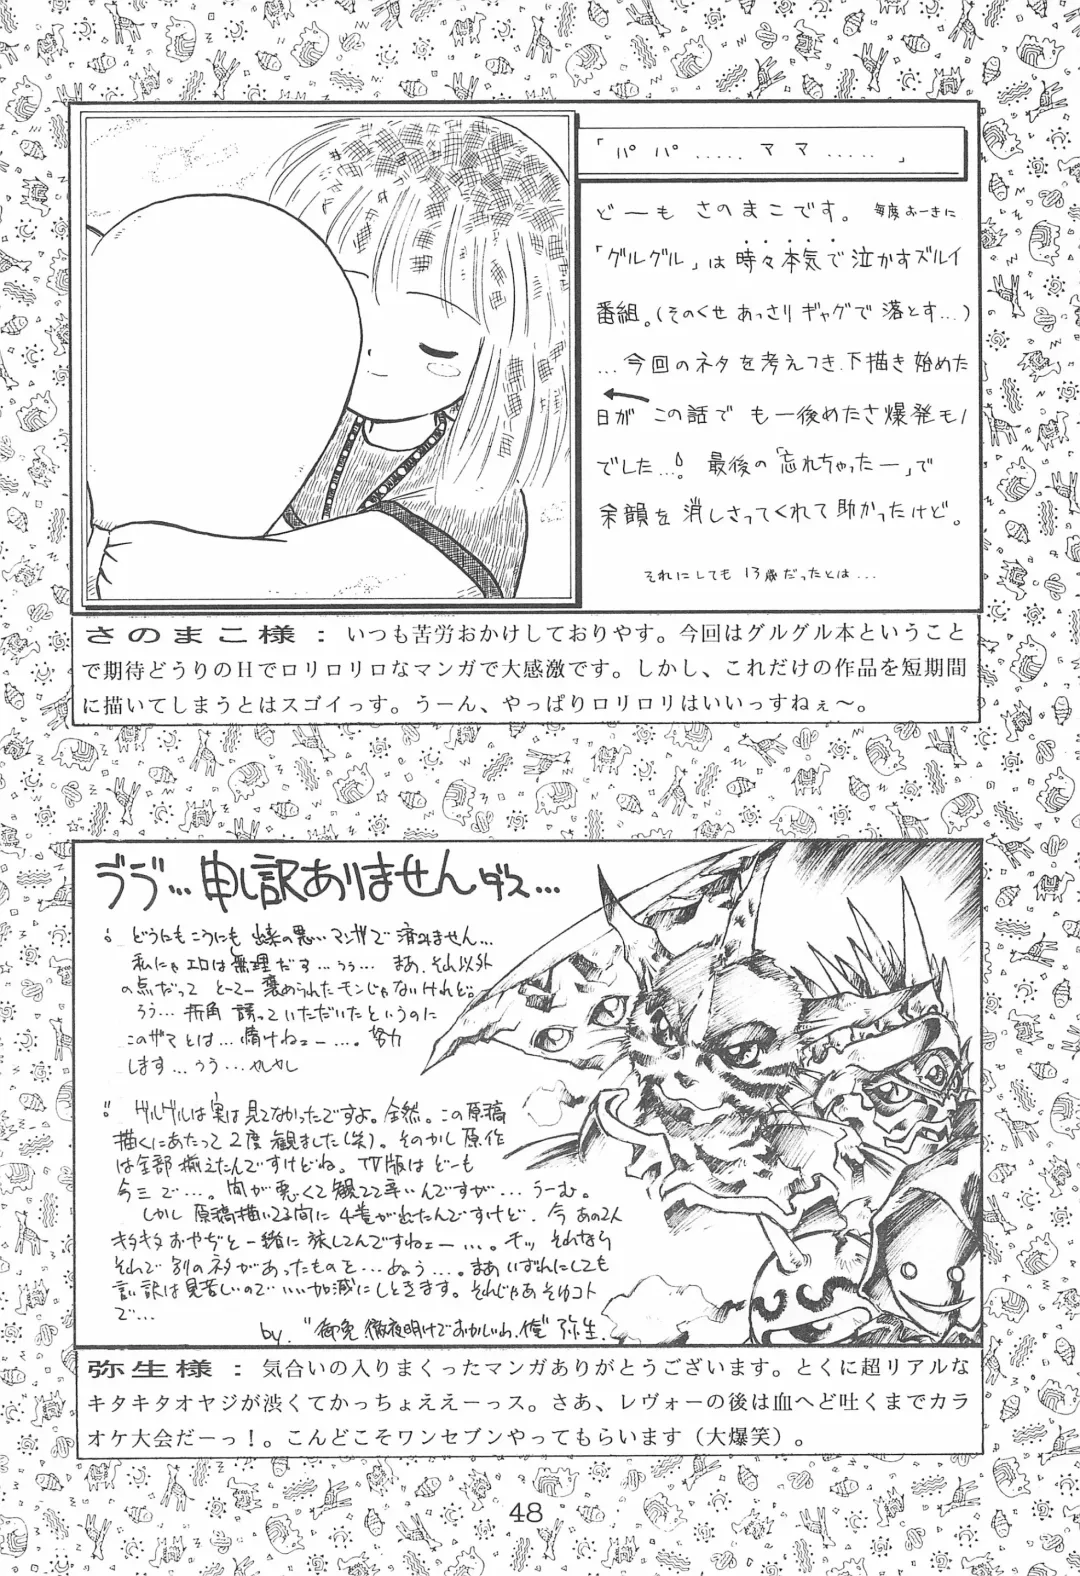 「パパ.....ママ.....」
どーも さのまこです。毎度おーきに
「グルグル」は時々本気で泣かすズルイ
番組。(そのくせ あっさりギャグで落とす...)
...今回のネタを考えつき、下描き始めた
日がこの話でも一後めたさ爆発モノ
でした...。最後の「忘れちゃったー」で
余韻を消しさってくれて助かったけど。
それにしても 13歳だったとは...
さのまこ様：いつも苦労おかけしておりやす。今回はグルグル本ということ
で期待どうりのHでロリロリロなマンガで大感激です。しかし、これだけの作品を短期間
に描いてしまうとはスゴイっす。うーん、やっぱりロリロリはいいっすねぇ～。
申し訳ありませんダス...
どうにもこうにも 出来の悪いマンガで 済みません...
私にゃエロは無理だす...うぅ... まあ、それ以外
の点だって とーてー褒められたモンじゃないけれど。
うぅ... 折角 誘っていただいたというのに
このザマとは... 情けねェー...。努力
します...うう...
グルグルは実は見てなかったですよ。全然。この原稿
描くにあたって 2度 観ました(笑)。そのかし 原作
は全部 揃えたんですけどね。TV版は どーも
今三で...。間が悪くて観てて辛いんですが... うーむ。
しかし 原稿描いてる間に 4巻が出たんですけど、今 あの2人
キタキタおやぢと一緒に 旅してんですねェー...。チッ それなら
それで 別のネタがあったものを...ぬぅ...。まあ いずれにしても
言い訳は見苦しいので いい加減にしときます。そんじゃあ そゆコト
で...
by. "御免 徹夜明けでおかしいわ、俺" 弥生.
弥生様：気合いの入りまくったマンガありがとうございます。とくに超リアルな
キタキタオヤジが渋くてかっちょええーっス。さあ、レヴォーの後は血へど吐くまでカラ
オケ大会だーっ！。こんどこそワンセブンやってもらいます（大爆笑）。
48